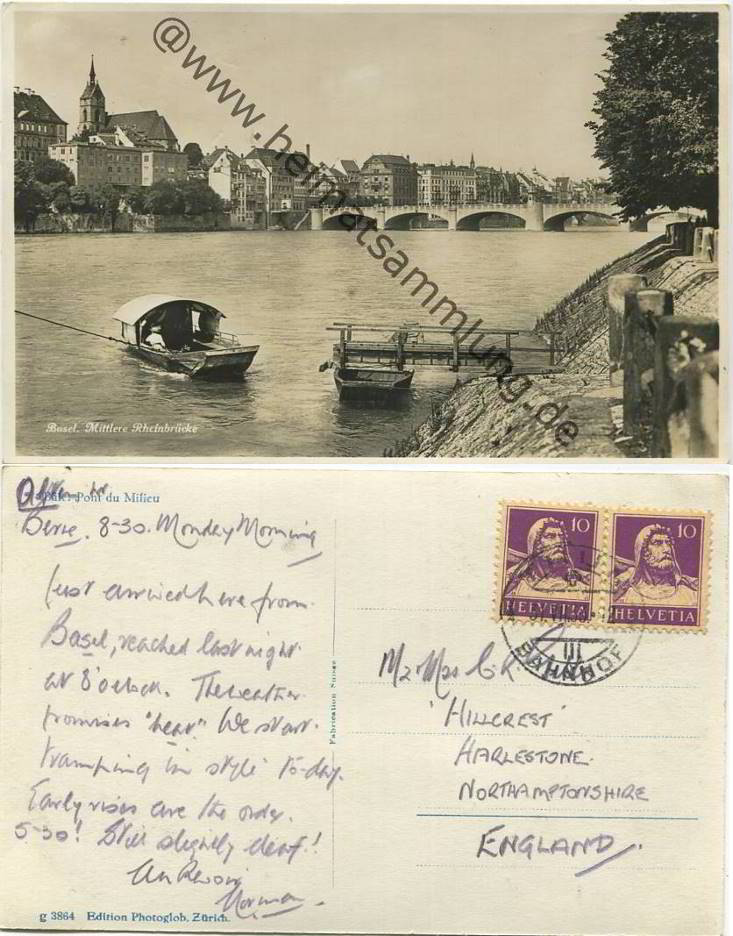 @www.heimatsammlung.de
Basel. Mittlere Rheinbrücke
Pont du Milieu
Berne. 8-30. Monday Morning
Just arrived here from
Basel, reached last night
at 8 o'clock. The weather
promises "heat". We start
tramping in style to-day.
Early rises are the order.
5-30! Still slightly deaf!
Au Revoir
Norman.
g 3864 Edition Photoglob, Zürich.
Fabrication Suisse
10 10
HELVETIA HELVETIA
III
BAHNHOF
Mr & Mrs C. R.
'HILLCREST'
HARLESTONE.
NORTHAMPTONSHIRE
ENGLAND.